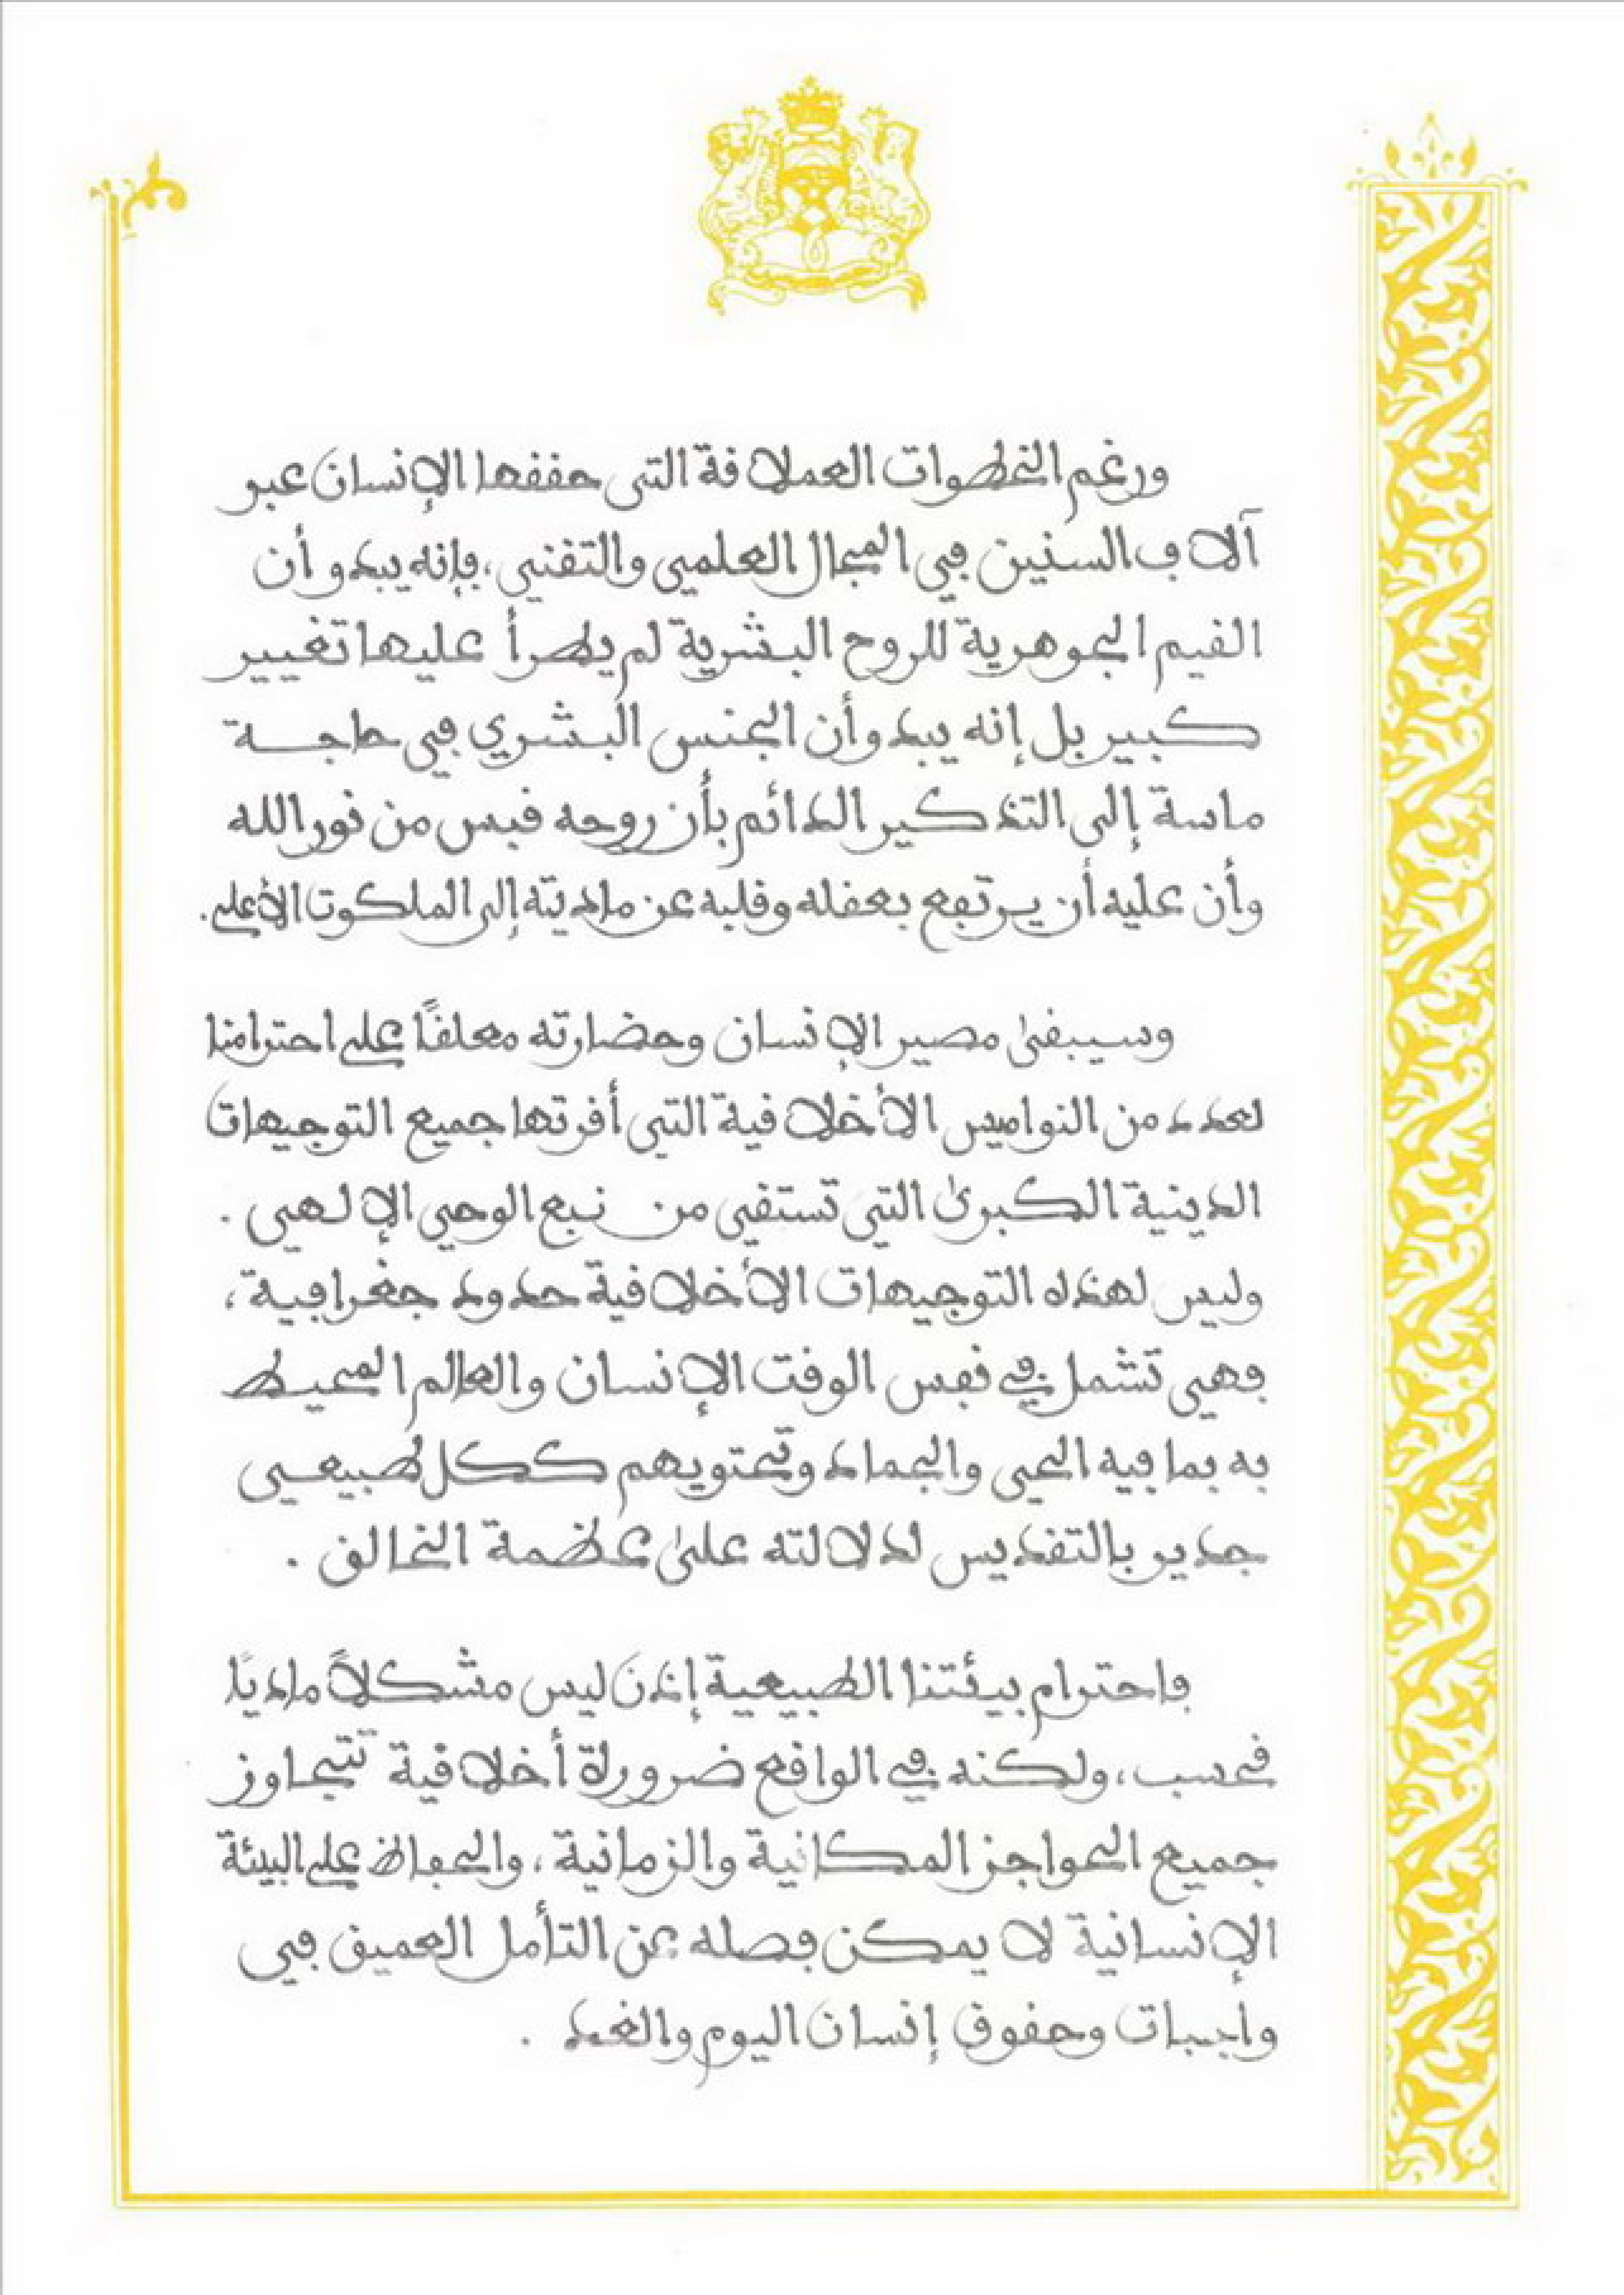 ورغم الخطوات العملاقة التي حققها الإنسان عبر
آلاف السنين في المجال العلمي والتقني، فإنه يبدو أن
القيم الجوهرية للروح البشرية لم يطرأ عليها تغيير
كبير بل إنه يبدو أن الجنس البشري في حاجة
ماسة إلى التذكير الدائم بأن روحه قبس من نور الله
وأن عليه أن يرتفع بعقله وقلبه عن ماديته إلى الملكوت الأعلى.
وسيبقى مصير الإنسان وحضارته معلقًا على احترامنا
لعدد من النواميس الأخلاقية التي أقرتها جميع التوجيهات
الدينية الكبرى التي تستقي من نبع الوحي الإلهي.
وليس لهذه التوجيهات الأخلاقية حدود جغرافية،
فهي تشمل في نفس الوقت الإنسان والعالم المحيط
به بما فيه الحي والجماد وتحتويهم ككل طبيعي
جدير بالتقديس لدلالته على عظمة الخالق.
فاحترام بيئتنا الطبيعية إذن ليس مشكلاً ماديًا
فحسب، ولكنه في الواقع ضرورة أخلاقية تتجاوز
جميع الحواجز المكانية والزمانية، والحفاظ على البيئة
الإنسانية لا يمكن فصله عن التأمل العميق في
واجبات وحقوق إنسان اليوم والغد.